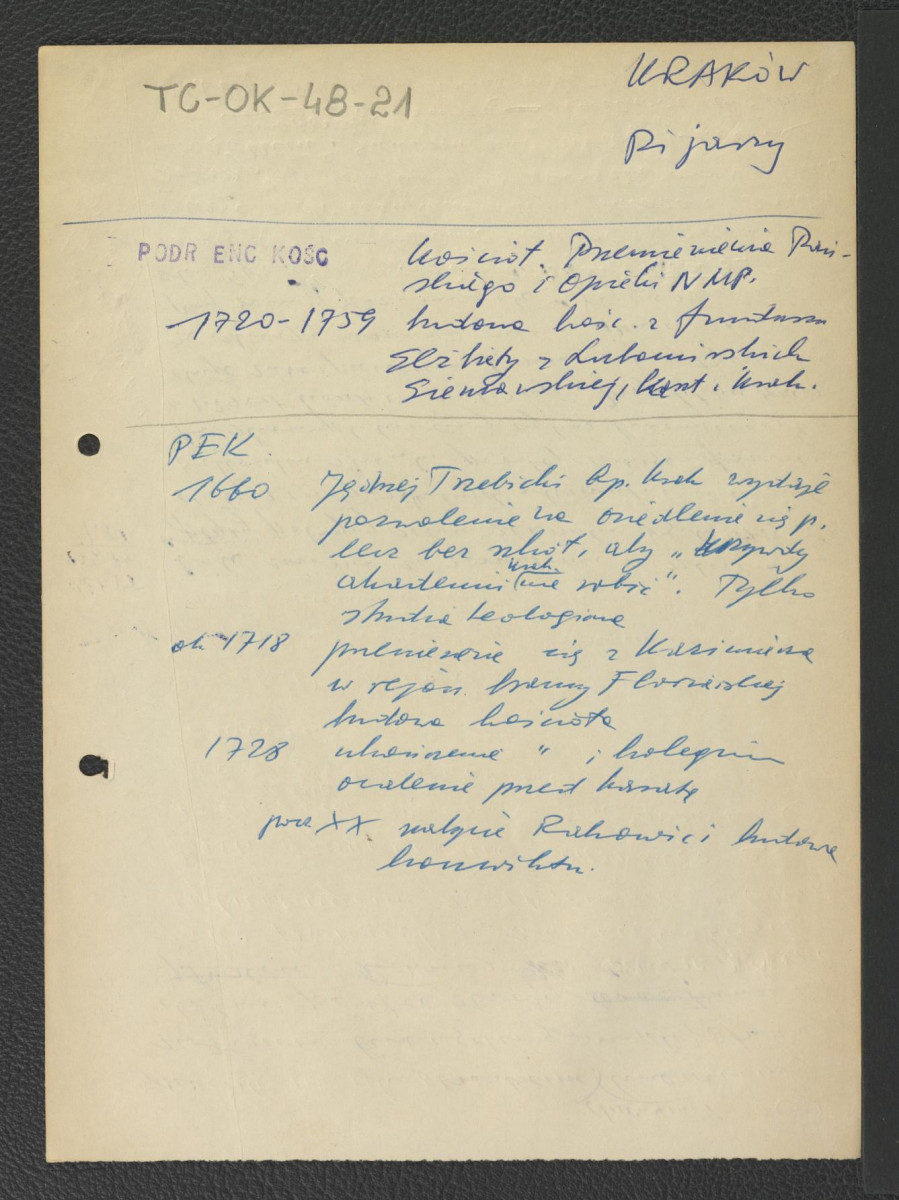 TC-OK-48-21
KRAKÓW
Pijarzy
PODR ENC KOŚC
Kościół Przemienienia Pań-
skiego i Opieki NMP.
1720-1759 budowa kośc. z funduszu
Elżbiety z Lubomirskich
Sieniawskiej, kaszt. krak.
PEK
1660 Jędrzej Trzebicki bp. krak wydaje
pozwolenie na osiedlenie się p.
lecz bez szkół, aby „krzywdy
akademii krak. nie robić". Tylko
studia teologiczne
ok 1718 przeniesienie się z Kazimierza
w rejon bramy Floriańskiej
budowa kościoła
1728 ukończenie " i kolegium
ocalenie przed kasatą
pocz. XX nabycie Rakowic i budowa
konwiktu.